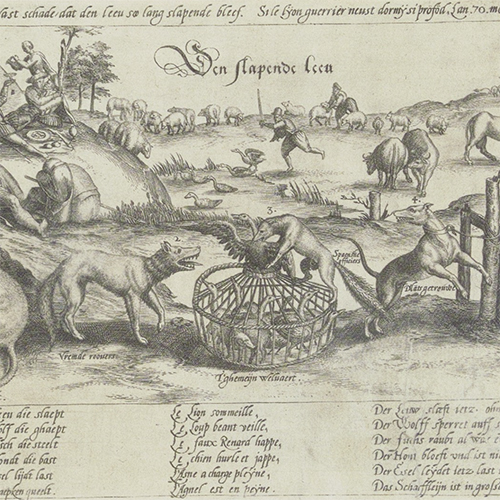 last schade, dat den leeu soe lang slapende bleef. Si le Lyon guerrier neust dormy si profōd, Lan. 70.
Den slapende leeu
2.
3.
4.
Spaensche
officiers
Vremde roovers.
T'ghemeijn welvaert.
den die slaept
wolf die ghaept
isch die steelt
hondt die bast
sel lijdt last
haepken quelt.
Le Lion sommeille,
Le Loup beant veille,
Le faux Renard happe,
Le chien hurle et jappe,
L'Asne a charge pleyne,
L'Agnel est en peyne.
Der Leuw slæft ietz. oh
Der Wolff sperret auff s
Der fuchs raubt al wa
Der Hont bloeft und ist ni
Der Esel leydet ietz last
Das Schaefflein ist in gros